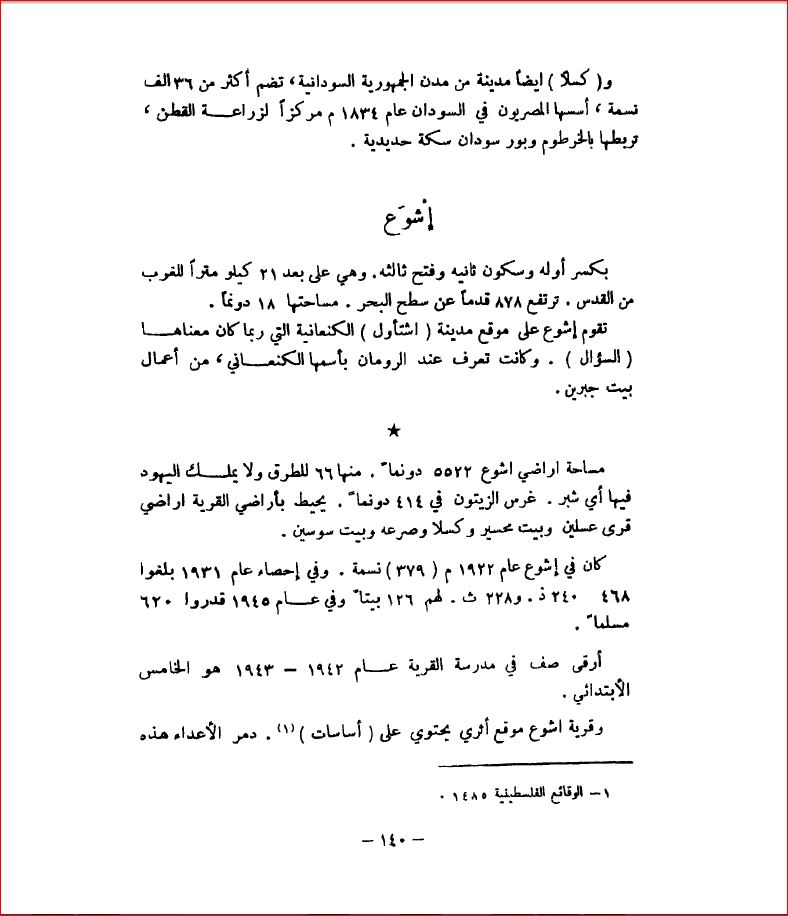 و( كسلا ) ايضاً مدينة من مدن الجمهورية السودانية، تضم أكثر من ٣٦ الف
نسمة ، أسسها المصريون في السودان عام ١٨٣٤ م مركزاً لزراعـــة القطن ،
تربطها بالخرطوم وبور سودان سكة حديدية .
إشْوَع
بكسر أوله وسكون ثانيه وفتح ثالثه. وهي على بعد ٢١ كيلو متراً للغرب
من القدس . ترتفع ٨٧٨ قدماً عن سطح البحر . مساحتها ١٨ دونماً .
تقوم إشوع على موقع مدينة ( اشتأول ) الكنعانية التي ربما كان معناهـــا
( السؤال ) . وكانت تعرف عند الرومان بأسمها الكنعـــاني، من أعمال
بيت جبرين .
★
مساحة اراضي اشوع ٥٥٢٢ دونماً . منها ٦٦ للطرق ولا يملــك اليهود
فيها أي شبر . غرس الزيتون في ٤١٤ دونماً . يحيط بأراضي القرية اراضي
قرى عسلين وبيت محسير وكسلا وصرعه وبيت سوسين .
كان في إشوع عام ١٩٢٢ م ( ٣٧٩ ) نسمة . وفي إحصاء عام ١٩٣١ بلغوا
٤٦٨ ٢٤٠ ذ . و٢٢٨ ث . لهم ١٢٦ بيتاً وفي عـــام ١٩٤٥ قدروا ٦٢٠
مسلماً .
أرقى صف في مدرسة القرية عـــام ١٩٤٢ – ١٩٤٣ هو الخامس
الأبتدائي .
وقرية اشوع موقع أثري يحتوي على ( أساسات ) (١) . دمر الأعداء هذه
١– الوقائع الفلسطينية ١٤٨٥ .
– ١٤٠ –